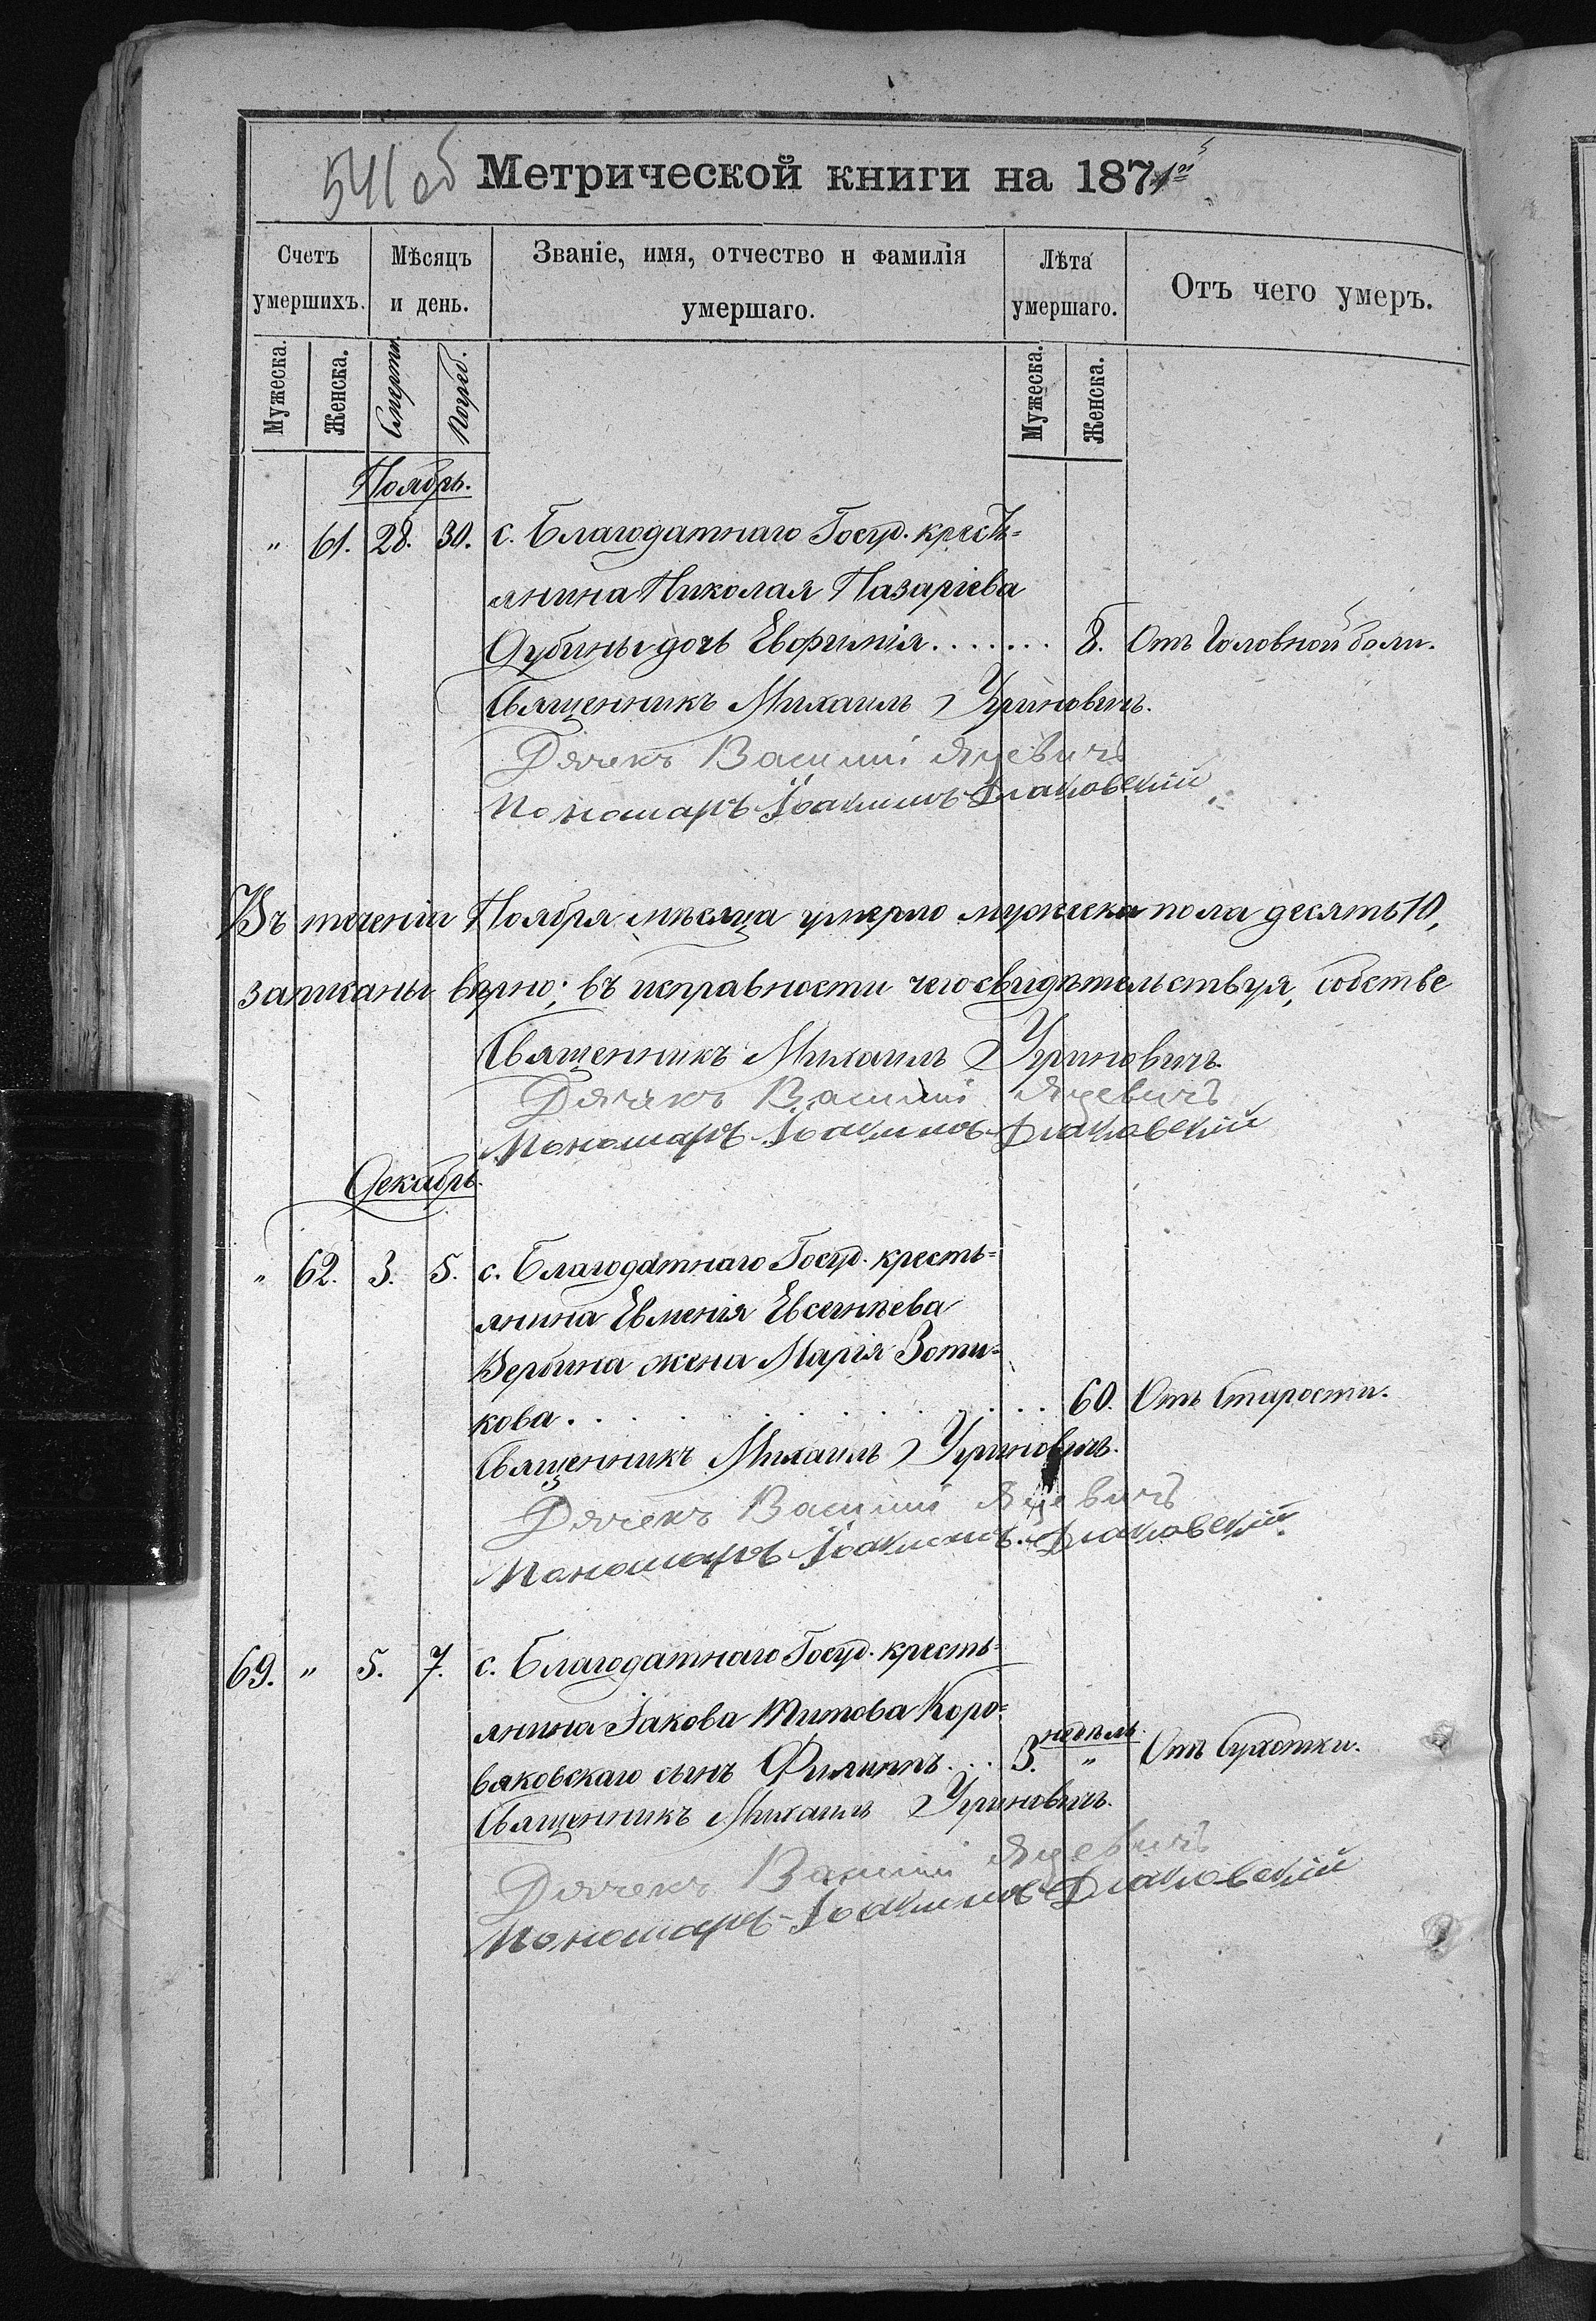 541 об
Метрической книги на 1871й
Счетъ умершихъ. Мѣсяцъ и день. Званіе, имя, отчество и фамилія умершаго. Лѣта умершаго. Отъ чего умеръ.
Мужеска. Женска. Смерти. Погреб. Мужеска. Женска.
Ноябрь.
" 61. 28. 30. с. Благодатнаго Госуд. кресть=
янина Николая Назаріева
Дубины дочь Евфимія....... 8. Отъ Головной боли.
Священникъ Михаилъ Угриновичъ.
Дячекъ Василій Яцевичъ
Пономарь Іоакимъ Дьаковскій
Въ теченіи Ноября мѣсяца умерло мужеска пола десять 10,
записаны вѣрно; въ исправности чего свидѣтельствуя, собстве
Священникъ Михаилъ Угриновичъ.
Дячекъ Василій Яцевичъ
Пономарь Іоакимъ Дьаковскій
Декабрь.
" 62. 3. 5. с. Благодатнаго Госуд. кресть=
янина Евменія Евсентѣева
Вербина жена Марія Зоти=
кова. . . . . . . . . . 60. Отъ Старости.
Священникъ Михаилъ Угриновичъ.
Дячекъ Василій Яцевичъ
Пономарь Іоакимъ Дьаковскій
69. " 5. 7. с. Благодатнаго Госуд. кресть=
янина Іакова Титова Коро=
вяковскаго сынъ Филиппъ... 3. недѣль. " Отъ Сухотки.
Священникъ Михаилъ Угриновичъ.
Дячекъ Василій Яцевичъ
Пономарь Іоакимъ Дьаковскій